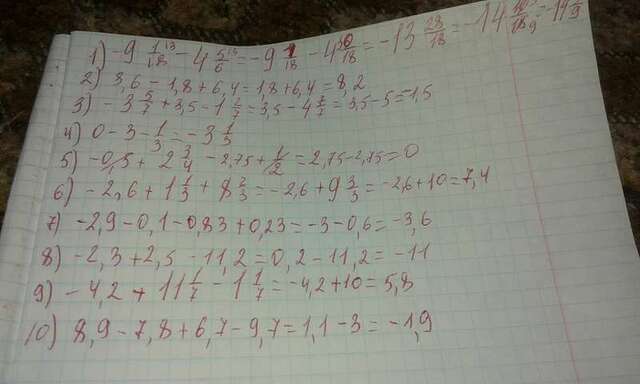 1) -9 1/18 - 4 5/6 = -9 1/18 - 4 30/18 = -13 28/18 = -14 10/18 = -14 5/9
2) 3,6 - 1,8 + 6,4 = 1,8 + 6,4 = 8,2
3) -3 5/7 + 3,5 - 1 2/7 = 3,5 - 4 7/7 = 3,5 - 5 = -1,5
4) 0 - 3 - 1/3 = -3 1/3
5) -0,5 + 2 3/4 - 2,75 + 1/2 = 2,75 - 2,75 = 0
6) -2,6 + 1 1/3 + 8 2/3 = -2,6 + 9 3/3 = -2,6 + 10 = 7,4
7) -2,9 - 0,1 - 0,83 + 0,23 = -3 - 0,6 = -3,6
8) -2,3 + 2,5 - 11,2 = 0,2 - 11,2 = -11
9) -4,2 + 11 1/7 - 1 1/7 = -4,2 + 10 = 5,8
10) 8,9 - 7,8 + 6,7 - 9,7 = 1,1 - 3 = -1,9